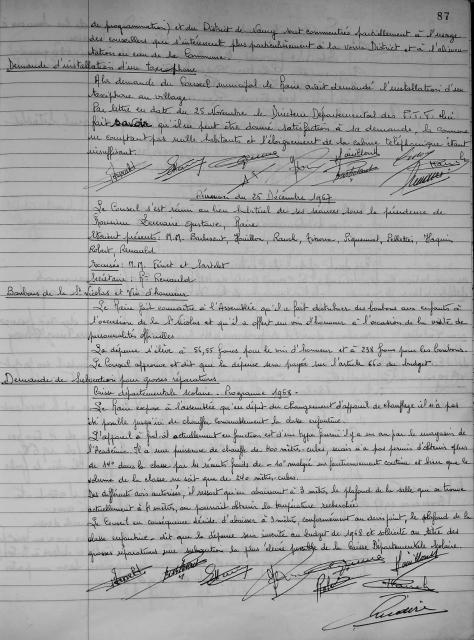 87
de programmation) et du District de Nancy sont commentés partiellement à l'usage
des conseillers qui s'intéressent plus particulièrement à la voirie District et à l'alimen-
tation en eau de la Commune.
Demande d'installation d'un taxiphone
A la demande du Conseil municipal le Maire avait demandé l'installation d'un
taxiphone au village.
Par lettre en date du 25 Novembre le Directeur Départemental des P.T.T.
fait savoir qu'il ne peut être donné satisfaction à la demande, la commune
ne comptant pas mille habitants et l'élargissement de la cabine téléphonique étant
insuffisant.
Réunion du 26 Décembre 1967
Le Conseil s'est réuni au lieu habituel de ses séances sous la présidence de
Monsieur Gustave, Maire
Etaient présents: M.M. Houillon, Pelletier,
Robert, Renauld
Excusés: M.M. Férriet et
Secrétaire: Mr Renauld
Bonbons de la St Nicolas et Vin d'honneur
Le Maire fait connaître à l'Assemblée qu'il a fait distribuer des bonbons aux enfants à
l'occasion de la St Nicolas et qu'il a offert un vin d'honneur à l'occasion de la visite de
personnalités officielles
La dépense s'élève à 56,55 francs pour le vin d'honneur et à 238 francs pour les bonbons.
Le Conseil approuve et dit que la dépense sera payée sur l'article 660 du budget.
Demande de Subvention pour grosses réparations
Caisse départementale scolaire. Programme 1968.
Le Maire expose à l'assemblée qu'en dépit du changement d'appareil de chauffage il n'a pas
été possible jusqu'ici de chauffer convenablement la classe enfantine.
L'appareil à fuel actuellement en fonction est d'un type fourni il y a un an par le magasin de
l'Académie. Il a une puissance de chauffe de 600 mètres-cubes, mais n'a pas permis d'obtenir plus
de 14° dans la classe par les grands froids de - 10° malgré un fonctionnement continu et bien que le
volume de la classe ne soit que de 240 mètres-cubes.
Des différents avis autorisés, il ressort qu'en abaissant à 3 mètres, le plafond de la salle qui se trouve
actuellement à 4 mètres, on pourrait obtenir la température recherchée.
Le Conseil en conséquence décide d'abaisser à 3 mètres, conformément au devis joint, le plafond de la
classe enfantine - dit que la dépense sera inscrite au budget de 1968 et sollicite au titre des
grosses réparations une subvention la plus élevée possible de la Caisse Départementale Scolaire.